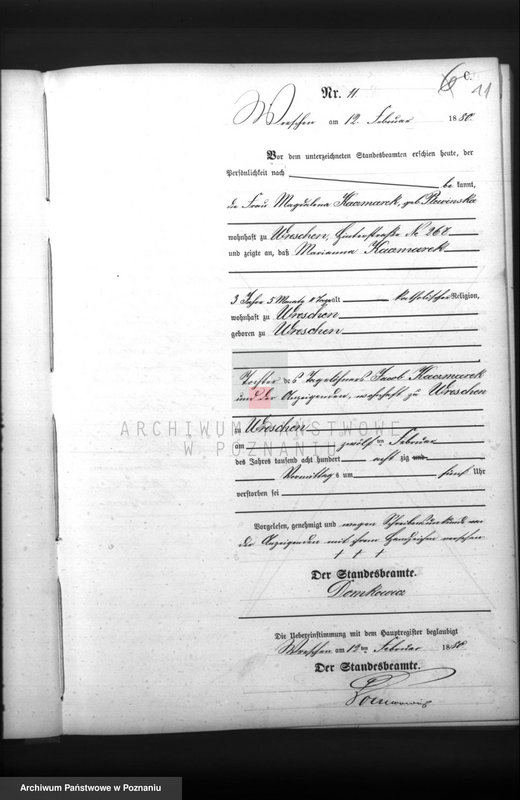 C.
11
Nr. 11
Wreschen am 12. Februar 1880.
Vor dem unterzeichneten Standesbeamten erschien heute, der
Persönlichkeit nach
be kannt,
die Frau Magdalena Kaczmarek, geb.
wohnhaft zu Wreschen, № 268
und zeigte an, daß Marianna Kaczmarek
3 Jahre 5 Monate alt katholischer Religion,
wohnhaft zu Wreschen
geboren zu Wreschen
Tochter des Tagelöhners Jacob Kaczmarek
und der Anzeigenden, wohnhaft zu Wreschen
zu Wreschen
am zwölften Februar
des Jahres tausend acht hundert acht zig und
Vormittags um fünf Uhr
verstorben sei
Vorgelesen, genehmigt und wegen Schreibensunkunde von
der Anzeigenden mit ihrem Handzeichen versehen
+ + +
Der Standesbeamte.
Die Uebereinstimmung mit dem Hauptregister beglaubigt
Wreschen am 12ten Februar 1880.
Der Standesbeamte.
ARCHIWUM PAŃSTWOWE
W POZNANIU
Archiwum Państwowe w Poznaniu